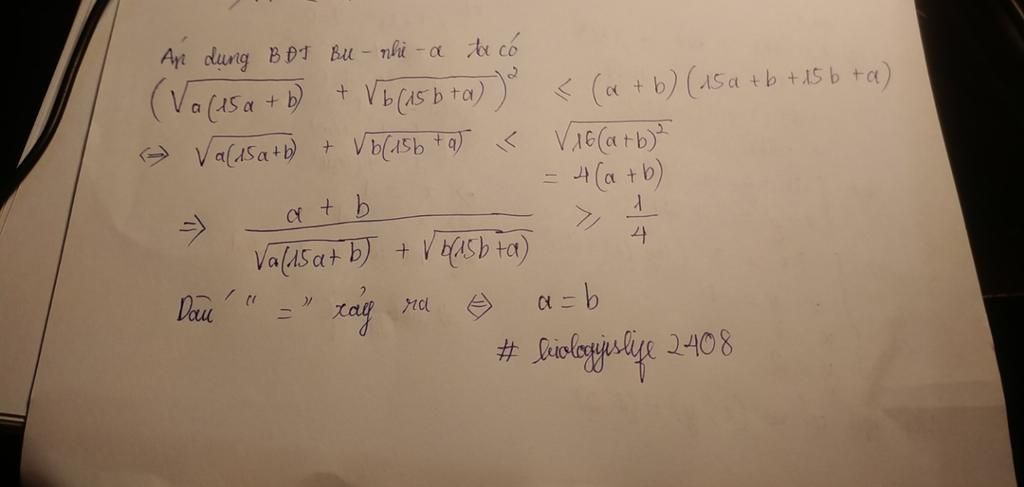 Áp dụng BĐT Bu-nhi-a ta có
(√a(15a+b) + √b(15b+a))² ≤ (a+b)(15a+b+15b+a)
⇔ √a(15a+b) + √b(15b+a) ≤ √16(a+b)²
= 4(a+b)
⇒ (a+b)/(√a(15a+b) + √b(15b+a)) ≥ 1/4
Dấu "=" xảy ra ⇔ a=b
# biologyislife2408